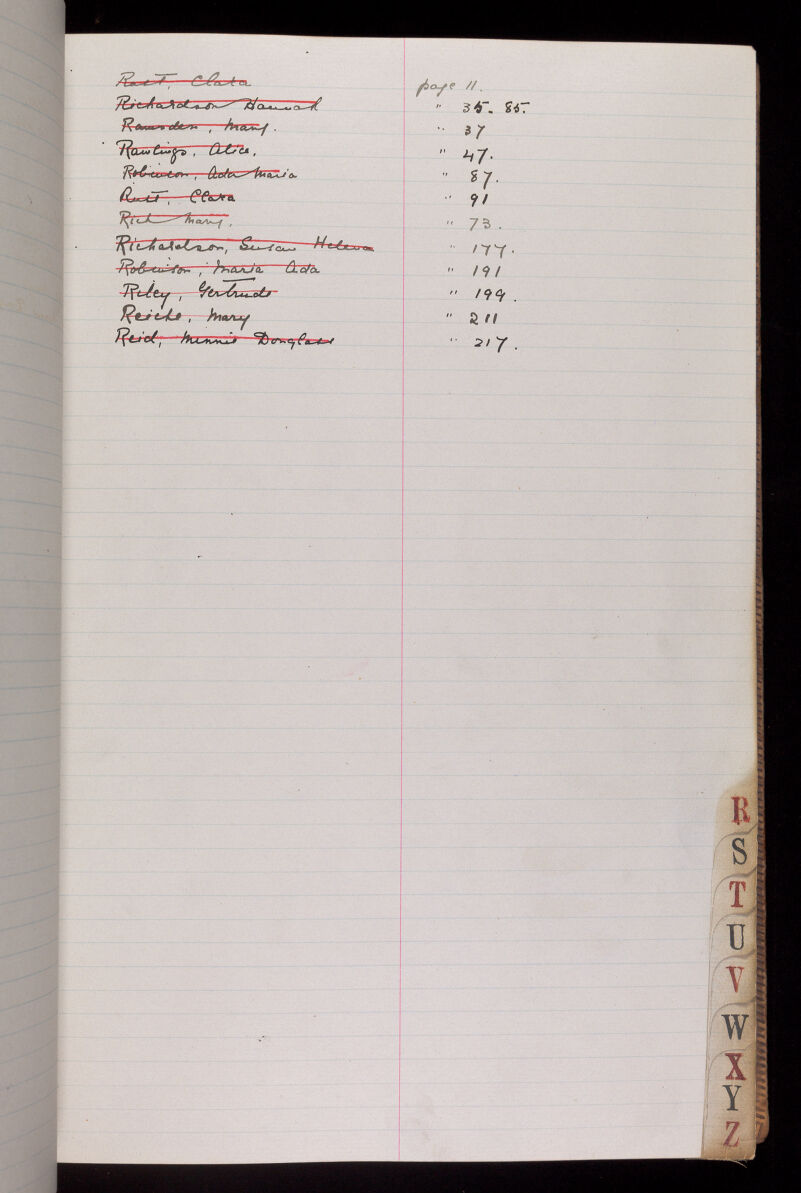 Rast, Clara page 11.
Richardson Hannah " 35. 85.
Ramsden, Mary. " 37
Rawlings, Alice. " 47.
Robinson, Ada Maria " 87.
Rust, Clara " 91
Rich Mary. " 73.
Richardson, Susan Helena " 177.
Robinson, Maria Ada " 191
Riley, Gertrude " 199.
Reiche, Mary " 211
Reid, Minnie Douglass " 217.
R
S
T
U
V
W
X
Y
Z